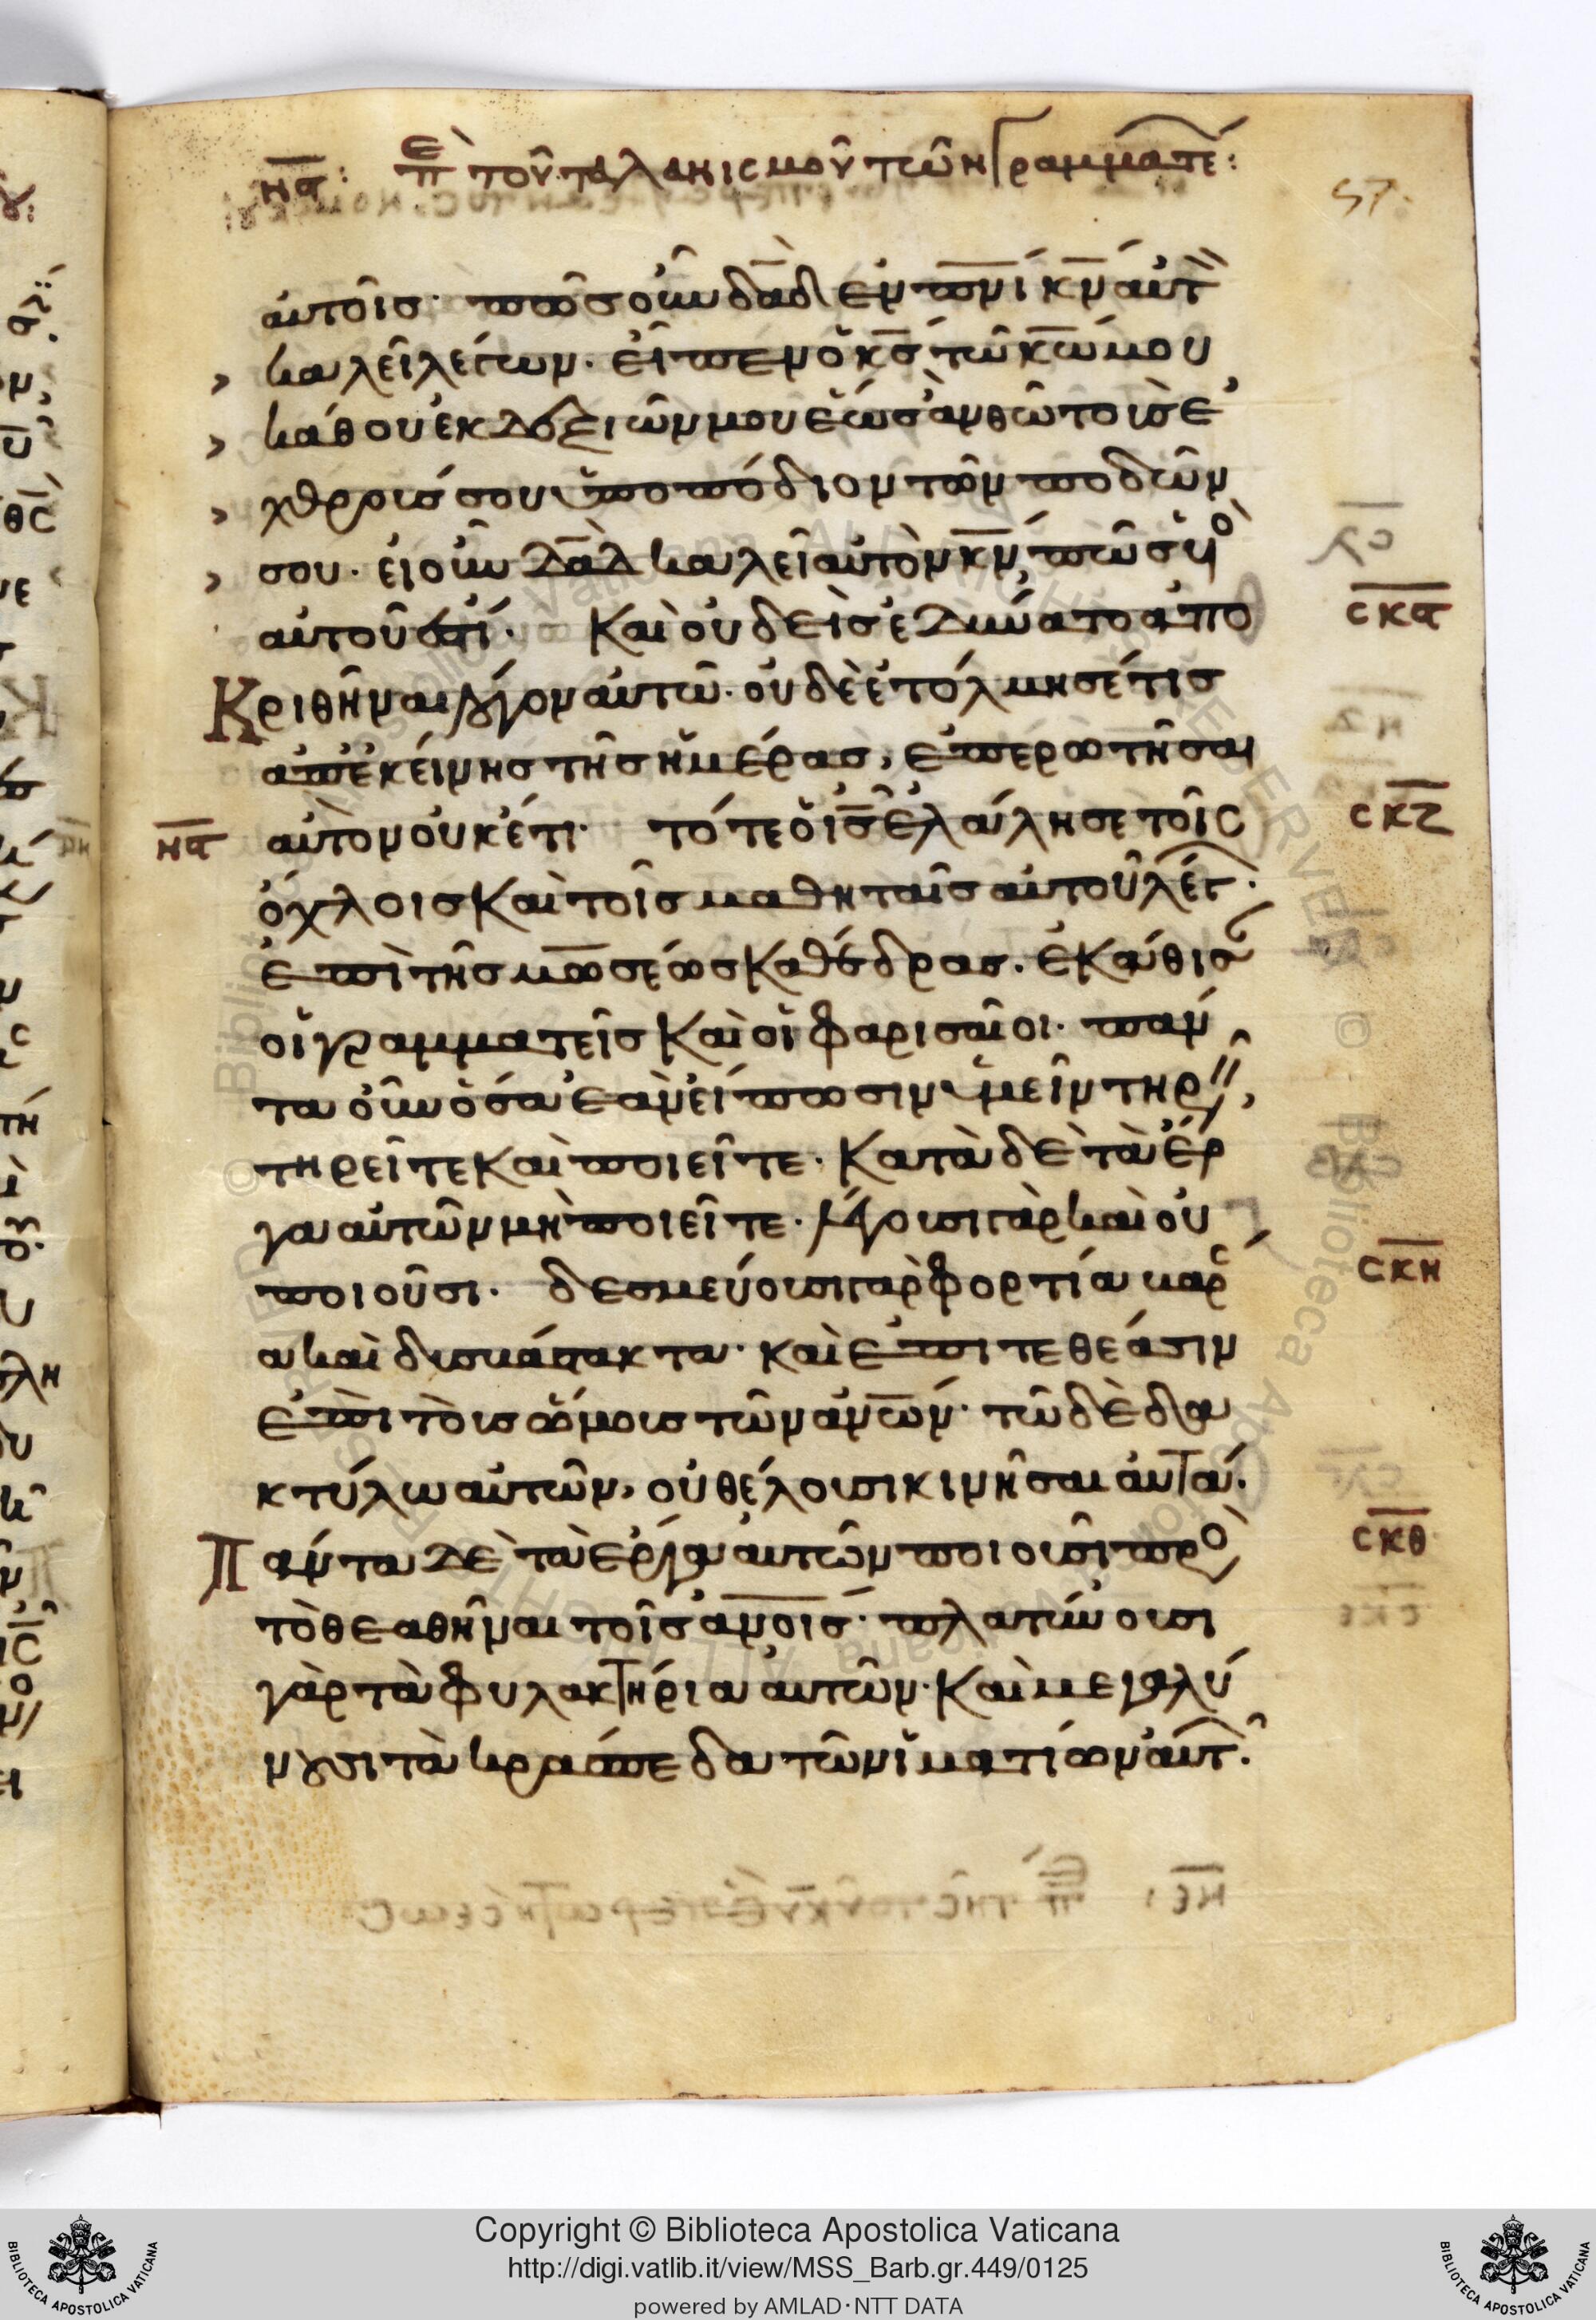 να: πε τοῦ ταλανισμοῦ τῶν γραμματε:
57.
αὐτοῖσ· πῶσ οὖν δαδ ἐν πνι κν αὐτ
> καλεῖ λέγων· εἶπεν ὁ κσ τῶ κω μου
> κάθου ἐκ δεξιῶν μου ἕωσ ἂν θῶ τοὺσ ἐ
> χθρούσ σου ὑποπόδιον τῶν ποδῶν
> σου· εἰ οὖν δαδ καλεῖ αὐτὸν κν, πῶσ υἱὸ
αὐτοῦ ἐστί· Καὶ οὐδεὶσ ἐδύνατο ἀπο
σκϛ
Κριθῆναι λόγον αὐτῶ· οὐδὲ ἐτόλμησέ τισ
ἀπ' ἐκείνησ τῆσ ἡμέρασ, ἐπερωτῆσαι
να αὐτὸν οὐκέτι· τότε ὁ ισ ἐλάλησε τοῖσ
σκζ
ὄχλοισ Καὶ τοῖσ μαθηταῖσ αὐτοῦ λέγ·
ἐπὶ τῆσ μωσέωσ Καθέδρασ· ἐκάθισ
οἱ γραμματεῖσ Καὶ οἱ φαρισαῖοι· πάν
τα οὖν ὅσα ἐὰν εἴπωσιν ὑμεῖν τηρ,
τηρεῖτε Καὶ ποιεῖτε· Κατὰ δὲ τὰ ἔρ
γα αὐτῶν μὴ ποιεῖτε· λέγουσι γὰρ καὶ οὐ
ποιοῦσι· δεσμεύουσι γὰρ φορτία βαρ
σκη
α καὶ δυσβάστακτα· καὶ ἐπιτεθέασιν
ἐπὶ τοὺσ ὤμουσ τῶν ανων· τῶ δὲ δα
κτύλω αὐτῶν, οὐ θέλουσι κινῆσαι αὐτά·
Πάντα δὲ τὰ ἔργα αὐτῶν ποιοῦσι πρὸ
σκθ
τὸ θεαθῆναι τοῖσ ανοισ· πλατύνουσι
γὰρ τὰ φυλακτήρια αὐτῶν· Καὶ μεγαλύ
νουσι τὰ κράσπεδα τῶν ἱματίων αὐτ·
Copyright © Biblioteca Apostolica Vaticana
http://digi.vatlib.it/view/MSS_Barb.gr.449/0125
powered by AMLAD·NTT DATA
BIBLIOTECA APOSTOLICA VATICANA
BIBLIOTECA APOSTOLICA VATICANA